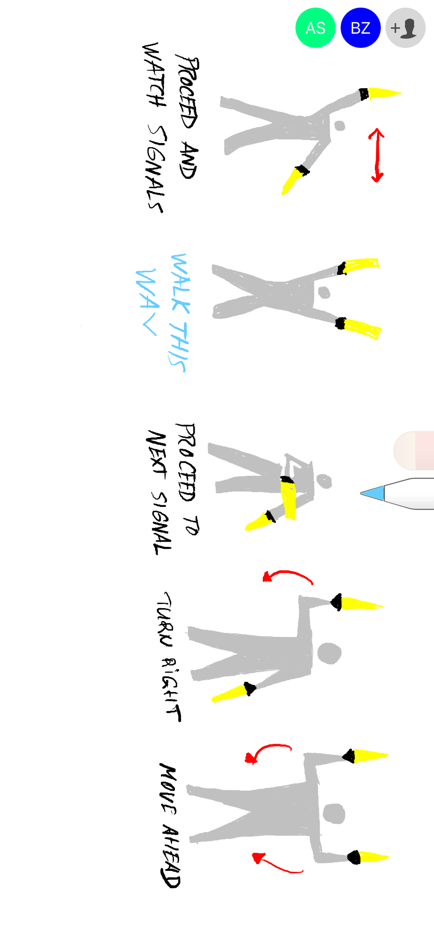 AS
BZ
PROCEED AND
WATCH SIGNALS
WALK THIS
WAV
PROCEED TO
NEXT SIGNAL
TURN RiGHT
MOVE AHEAD